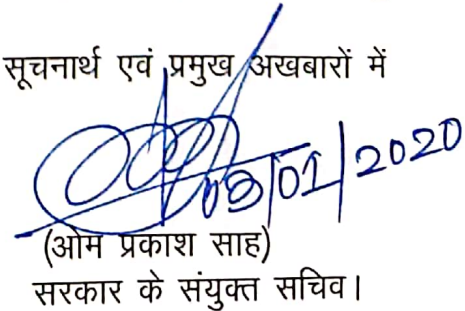 सूचनार्थ एवं प्रमुख अखबारों में
08/01/2020
(ओम प्रकाश साह)
सरकार के संयुक्त सचिव।